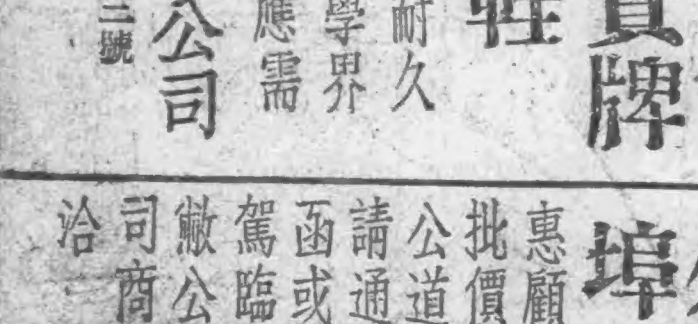 牌
耐久
學界
應需
公司
三號
埠
惠顧
批價
公道
請通
函或
駕臨
敝公
司商
洽